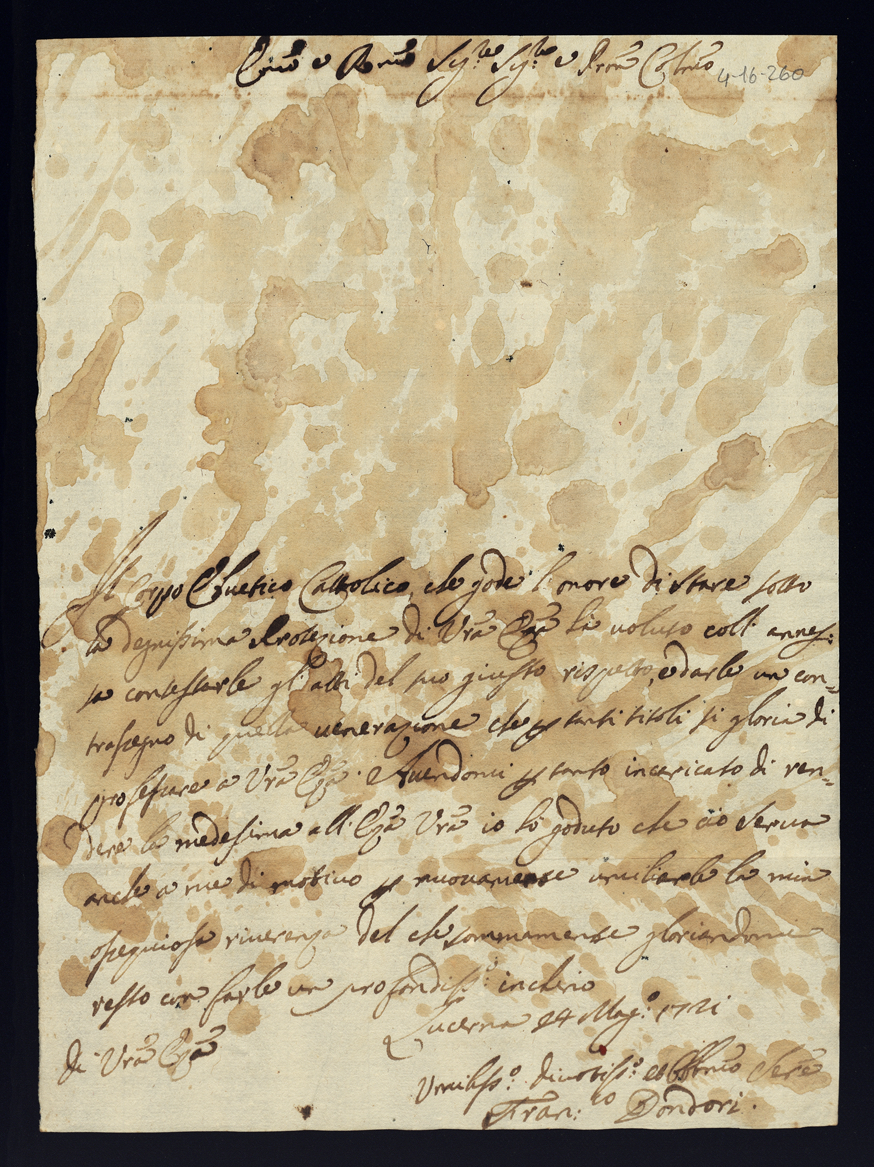 Emo e Rmo Sigre Sigre e Pron Colmo
4-16-260
Il Corpo Elvetico Cattolico, che gode l'onore di stare sotto
la degnissima Protezione di Vra Eza hà voluto coll' annes:
sa contestarle gl' atti del suo giusto rispetto, e darle un con=
trasegno di quella venerazione che p tanti titoli si gloria di
professare a Vra Eza. Avendomi p tanto incaricato di ren=
dere la medesima all' Eza Vra io hò goduto che ciò serva
anche a me di motivo p nuovamente umiliarle la mia
ossequiosa riverenza del che sommamente gloriandomi
resto con farle un profondiss:o inchino
Lucerna 24 Mag:o 1721
di Vra Eza
Umiliss:o divotiss:o ed Obbmo Serre
Fran:co Dondori.